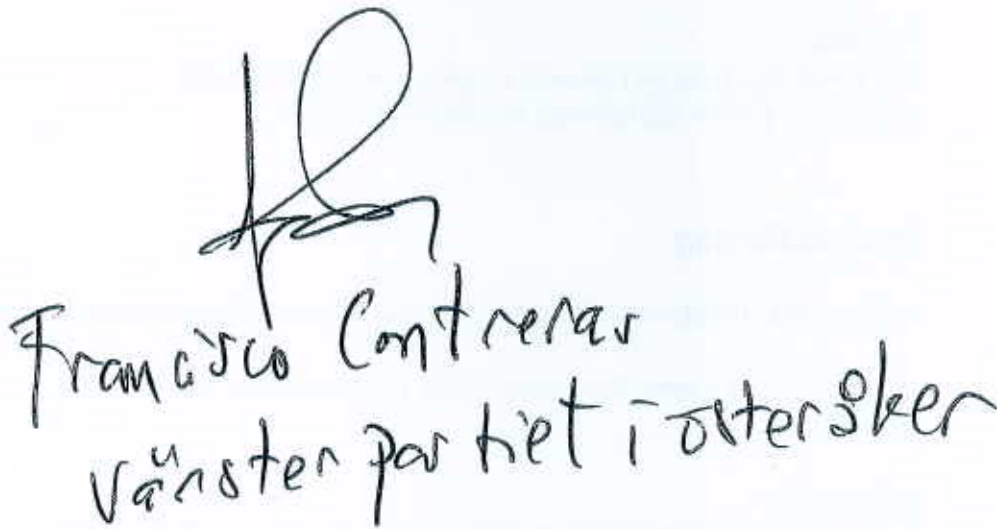 Francisco Contreras
Vänsterpartiet i österåker